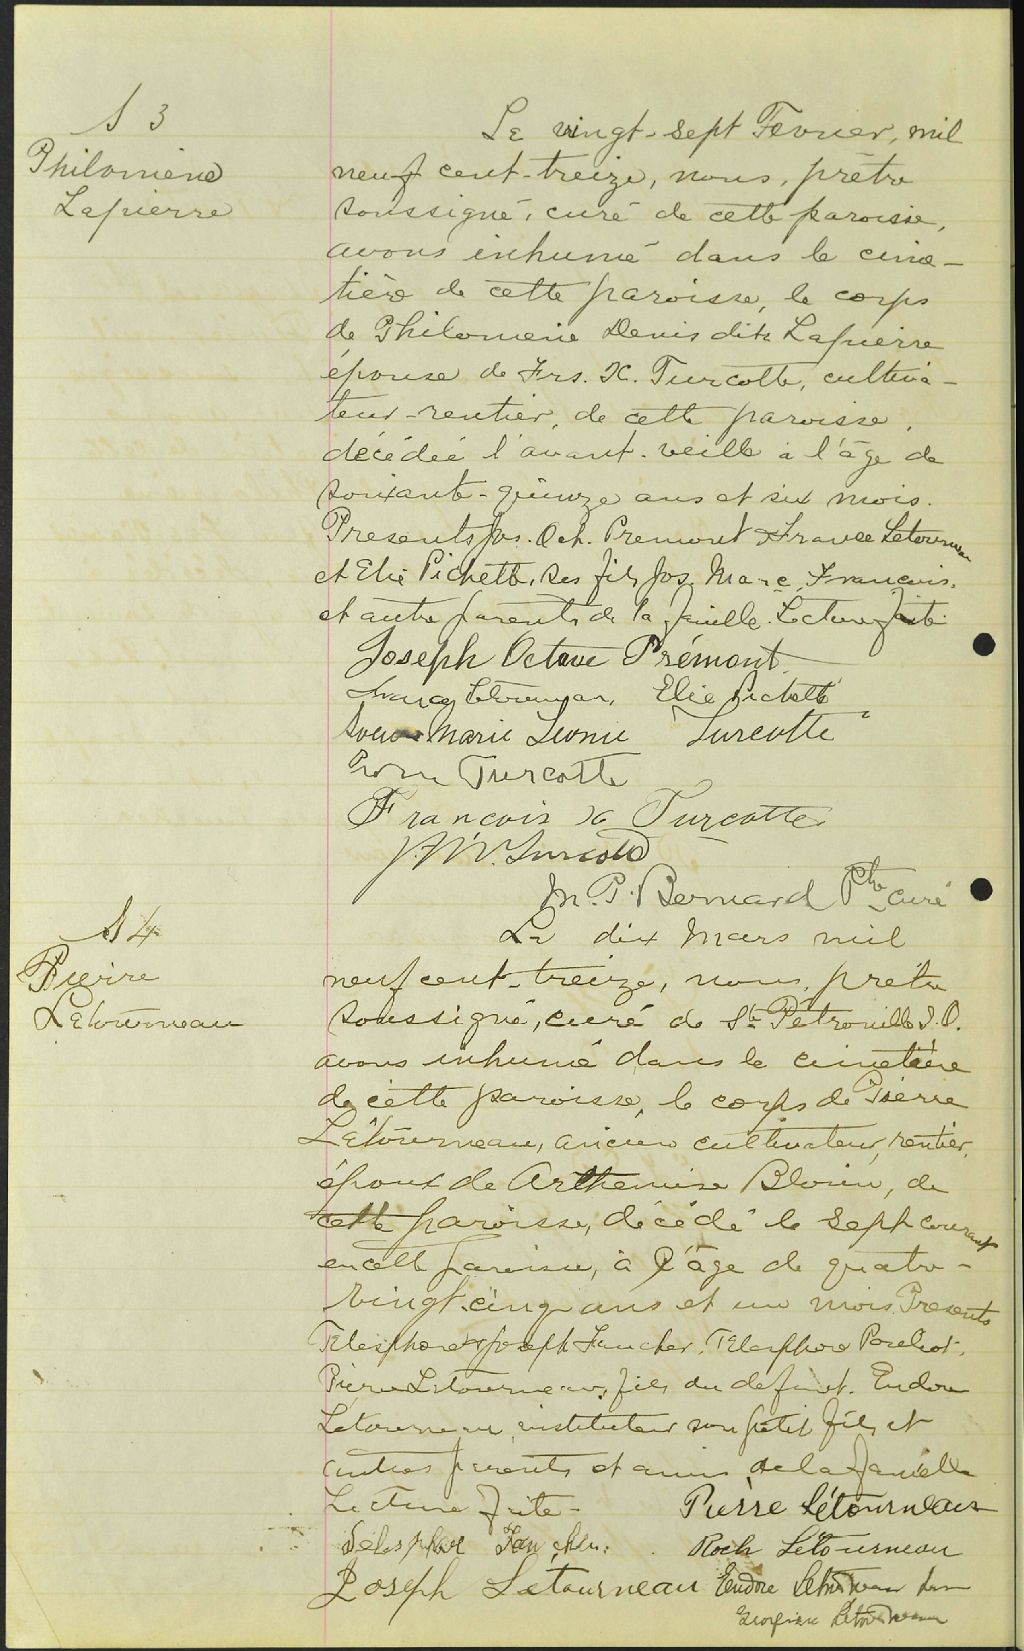 S 3
Philomène
Lapierre
Le vingt-sept Fevrier, mil
neuf cent-treize, nous, prêtre
soussigné, curé de cette paroisse,
avons inhumé dans le cime-
tière de cette paroisse, le corps
de Philomène Denis dite Lapierre
épouse de Frs. X. Turcotte, cultiva-
teur-rentier, de cette paroisse,
décédée l'avant-veille à l'âge de
soixante-quinze ans et six mois.
Presents Jos. Oct. Premont & France Letourneau
et Elie Pichette, ses fils Jos. Marc, Francois,
et autre parents de la famille. Lecture faite
Joseph Octave Prémont
Letourneau, Elie Pichette
Soeur Marie Leonie Turcotte
Turcotte
Francois X Turcotte
Turcotte
M. P. Bernard Ptre curé
S 4
Pierre
Létourneau
Le dix Mars mil
neuf cent-treize, nous, prêtre
soussigné, curé de Ste Pétronille I.O.
avons inhumé dans le cimetière
de cette paroisse, le corps de Pierre
Létourneau, ancien cultivateur, rentier,
époux de Arthemise Blouin, de
cette paroisse, décédé le sept courant
en cette paroisse, à l'âge de quatre-
vingt-cinq ans et un mois. Presents
Telesphore & Joseph Faucher, Telesphore Pouliot,
Pierre Letourneau, fils du defunt. Eudore
Letourneau, instituteur son petit fils et
autres parents et amis de la famille
Lecture faite - Pierre Létourneau
Télesphore Faucher. Roch Létourneau
Joseph Letourneau Eudore Letourneau
Letourneau